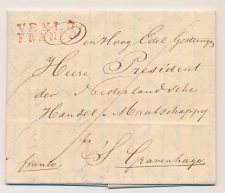 VENLO
FRANCO
Den Hoog Edel Gestrenge
Heere President
der Nederlandsche
Handel Maatschappy
te
franco 'S Gravenhage